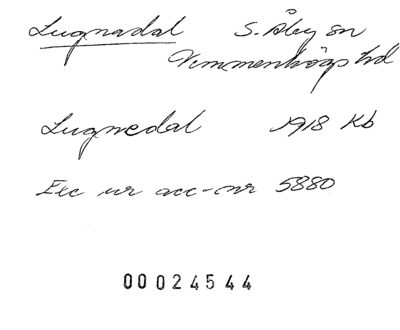 Lugnadal S. Åby sn
Vemmenhögs hd
Lugnedal 1918 Kb
Exc ur acc-nr 5880
00024544